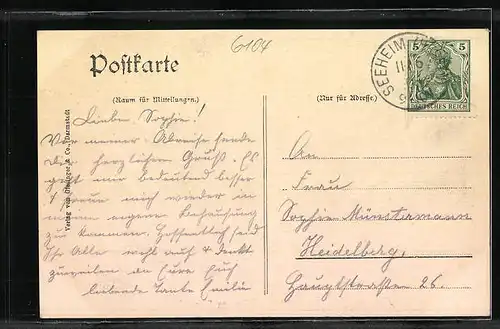 6104
Postkarte
(Raum für Mitteilungen.)
(Nur für Adresse.)
SEEHEIM
5 5
DEUTSCHES REICH
Verlag von & Co., Darmstadt
Lieben Sophie!
Vor meiner Abreise sende
der herzlichen Gruß. Es
geht mir bedeutend besser
& freue mich wieder in
meine eigene Behausung
zu kommen. Hoffentlich seid
Ihr Alle wohl auf & denkt
zuweilen an Eure Euch
liebende Tante Emilie
An
Frau
Sophie Münstermann
Heidelberg,
Hauptstrasse 26.